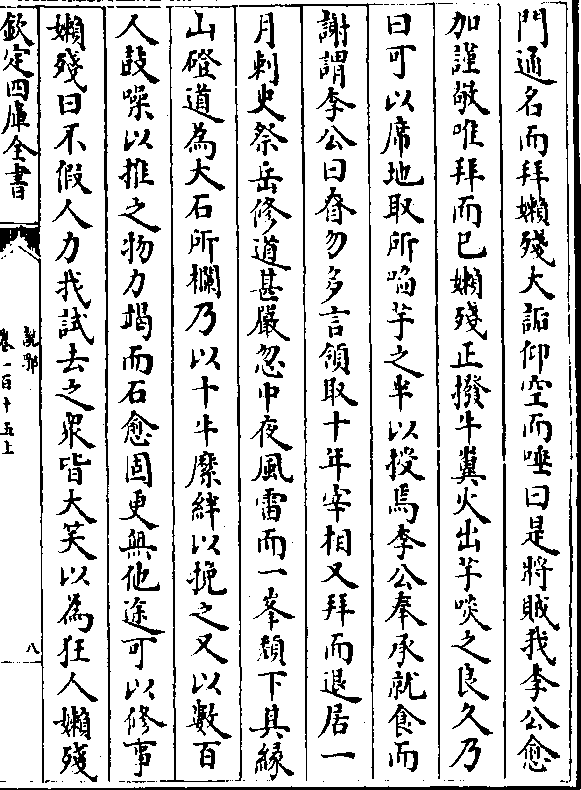 門通名而拜嬾殘大詬仰空而唾曰是將賊我李公愈
加謹敬唯拜而已嬾殘正撥牛糞火出芋啖之良久乃
曰可以席地取所啗芋之半以授焉李公奉承就食而
謝謂李公曰眘勿多言領取十年宰相又拜而退居一
月刺史祭岳修道甚嚴忽中夜風雷而一峯頹下其緣
山磴道為大石所欄乃以十牛縻絆以挽之又以數百
人鼓噪以推之物力竭而石愈固更無他途可以修事
嬾殘曰不假人力我試去之衆皆大笑以為狂人嬾殘
欽定四庫全書
說郛
卷一百十五上
八